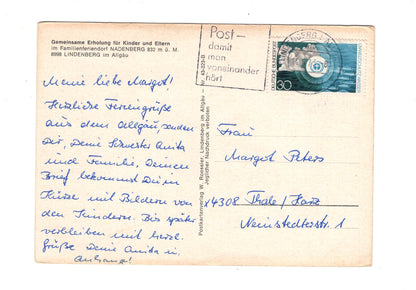 Gemeinsame Erholung für Kinder und Eltern
im Familienferiendorf NADENBERG 832 m ü. M.
8998 LINDENBERG im Allgäu
Meine liebe Margot!
Herzliche Feriengrüße
aus dem Allgäu senden
Dir, Deine Schwester Anita
und Familie, Deinen
Brief bekommst Du in
Kürze mit Bildern von
den Kindern. Bis später
verbleiben mit herzl.
Grüße Deine Anita u.
Anhang!
Postkartenverlag W. Roessler, Lindenberg im Allgäu – Nr. 43-223-G
Jeglicher Nachdruck verboten
Post-
damit
man
voneinander
hört
LINDENBERG i.
30
Frau
Margot Peters
x4308 Thale/Harz
Neinstedterstr. 1